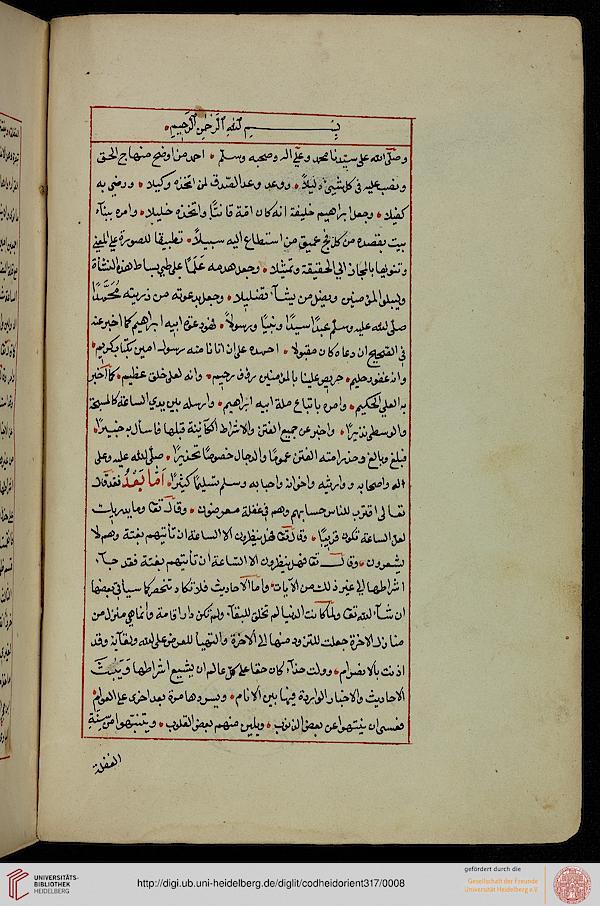 بسم الله الرحمن الرحيم
وصلى الله على سيدنا محمد وعلى اله وصحبه وسلم احمد من اوضح منهاج الحق
ونصب عليه في كل شيئ دليلا ووعد وعد الصدق لمن اتخذه وكيلا ورضي به
كفيلا وجعل ابراهيم خليفة انه كان امة قانتا واتخذه خليلا وامره ببناء
بيت يقصده من كل فج عميق من استطاع اليه سبيلا تطبيقا للصورة على المعنى
وتنويها بالمجاز الى الحقيقة وتمثيلا وجعل هدمه علما على طي بساط هذه النشأة
وليبلو المؤمنين ويضل من يشآ تضليلا وجعل بدعوته من ذريته محمدا
صلى الله عليه وسلم عبدا سيدا ونبيا ورسولا فهو دعوة ابيه ابراهيم كما اخبر عنه
في الصحيح ان دعاه كان مقبولا احمده على ان اتانا منه رسول امين بكتاب كريم
وانه غفور حليم حريص علينا بالمؤمنين رؤف رحيم وانه لعلى خلق عظيم كما اخبر
به العلي الحكيم وامره باتباع ملة ابيه ابراهيم وارسله بين يدي الساعة كالمسبحة
والوسطى نذيرا واخبر عن جميع الفتن والاشراط الكائنة قبلها فاسأل به خبيرا
فبلغ وبالغ وحذر امته الفتن عموما والدجال خصوصا تحذيرا صلى الله عليه وعلى
اله واصحابه ووارثيه واخوانه واحبابه وسلم تسليما كثيرا اما بعد فقد قال
تعالى اقترب للناس حسابهم وهم في غفلة معرضون وقال تعا وما يدريك
لعل الساعة تكون قريبا وقال تعا فهل ينظرون الا الساعة ان تأتيهم بغتة وهم لا
يشعرون وقال تعا فهل ينظرون الا الساعة ان تأتيهم بغتة فقد جاء
اشراطها الى غير ذلك من الآيات واما الاحاديث فلا تكاد تنحصر كما سيأتي بعضها
ان شآء الله تعا ولما كانت الدنيا لم تخلق للبقآء ولم تكن دار اقامة وانما هي منزل من
منازل الاخرة جعلت للتزود منها الى الاخرة والتهيأ للعرض على الله ولقآئه وقد
اذنت بالانصرام وولت حذاء كان حقا على كل عالم ان يشيع اشراطها ويبث
الاحاديث والاخبار الواردة فيها بين الانام ويسردها مرة بعد اخرى على العوام
فعسى ان ينتهوا عن بعض الذنوب ويلين منهم بعض القلوب وينتبهوا من سنة
الغفلة
UNIVERSITÄTS-
BIBLIOTHEK
HEIDELBERG
http://digi.ub.uni-heidelberg.de/diglit/codheidorient317/0008
gefördert durch die
Gesellschaft der Freunde
Universität Heidelberg e.V.